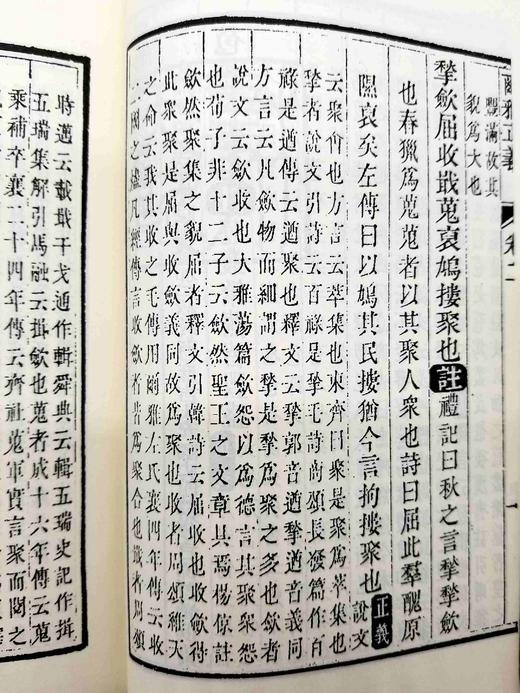 爾雅正義　卷二
豐滿故其
貌爲大也
揫斂屈收戢蒐裒鳩摟聚也註禮記曰秋之言揫揫斂
也春獵爲蒐蒐者以其聚人衆也詩曰屈此羣醜原
隰裒矣左傳曰以鳩其民摟猶今言拘摟聚也正義說文
云聚會也方言云萃集也東齊曰聚是聚爲萃集也
揫者說文引詩云百祿是揫毛詩商頌長發篇作百
祿是遒傳云遒聚也釋文云揫郭音遒揫遒音義同
方言云凡斂物而細謂之揫是揫爲聚之多也斂者
說文云斂收也大雅蕩篇斂怨以爲德言其聚衆怨
也荀子非十二子云斂然聖王之文章具焉楊倞云
斂然聚集之貌屈者釋文引韓詩云屈收也收斂得
此衆聚是屈與收斂義同故爲聚也收者周頌維天
之命云我其收之毛傳用爾雅左氏襄四年傳云收
二國之虛凡經傳言收斂者皆爲聚合也戢者周頌
時邁云載戢干戈通作輯舜典云輯五瑞史記作揖
五瑞集解引馬融云揖斂也蒐者成十六年傳云蒐
乘補卒襄二十四年傳云齊社蒐軍實言聚而閱之